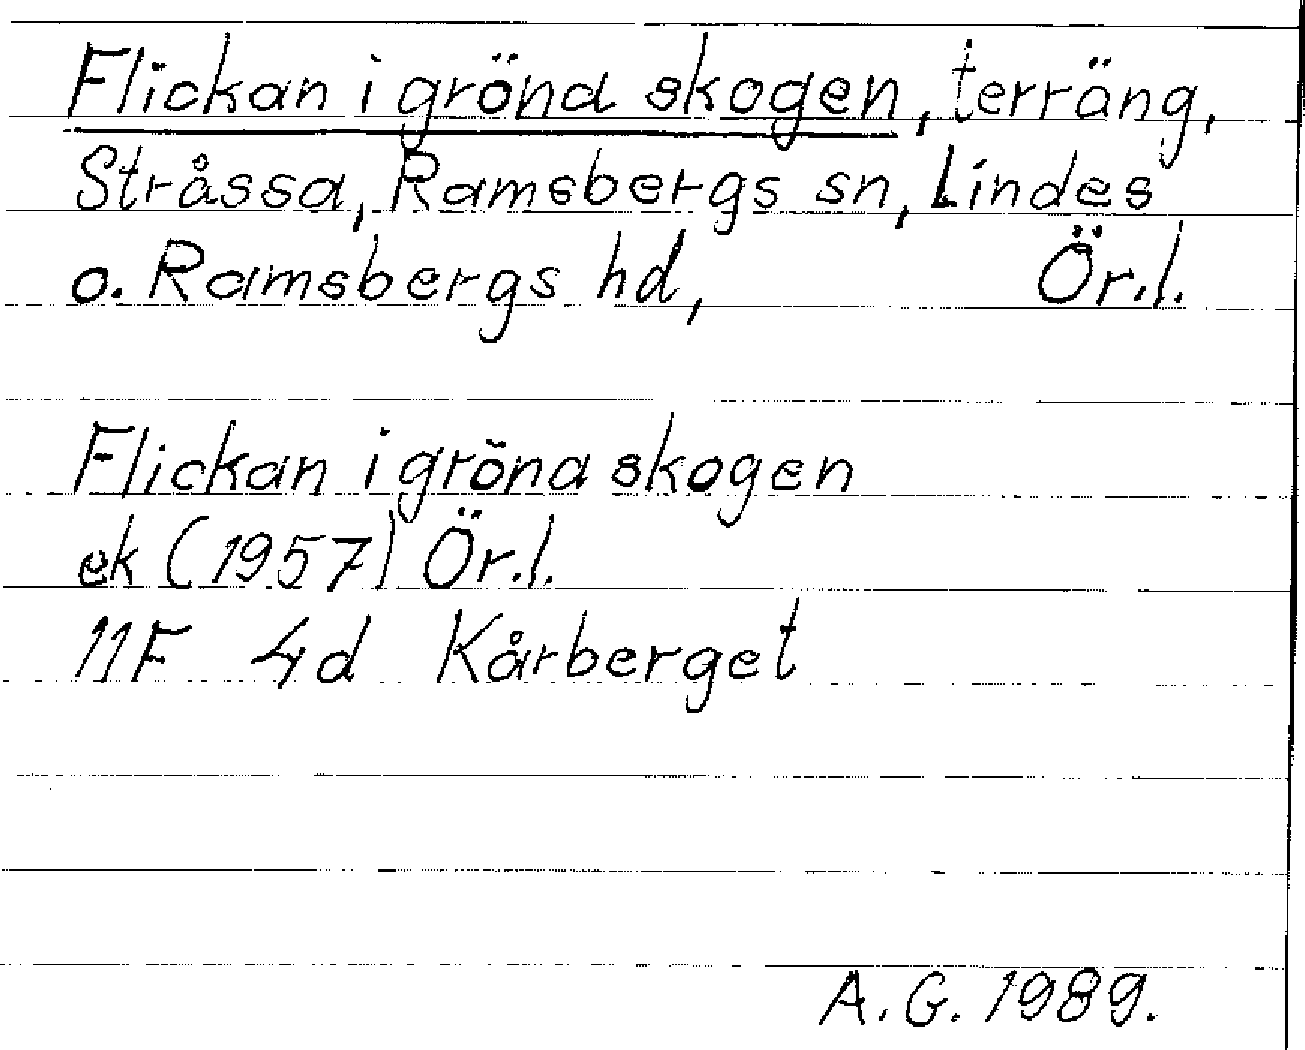 Flickan i gröna skogen, terräng,
Stråssa, Ramsbergs sn, Lindes
o. Ramsbergs hd, Ör.l.
Flickan i gröna skogen
ek (1957) Ör.l.
11F 4d Kårberget
A.G. 1989.